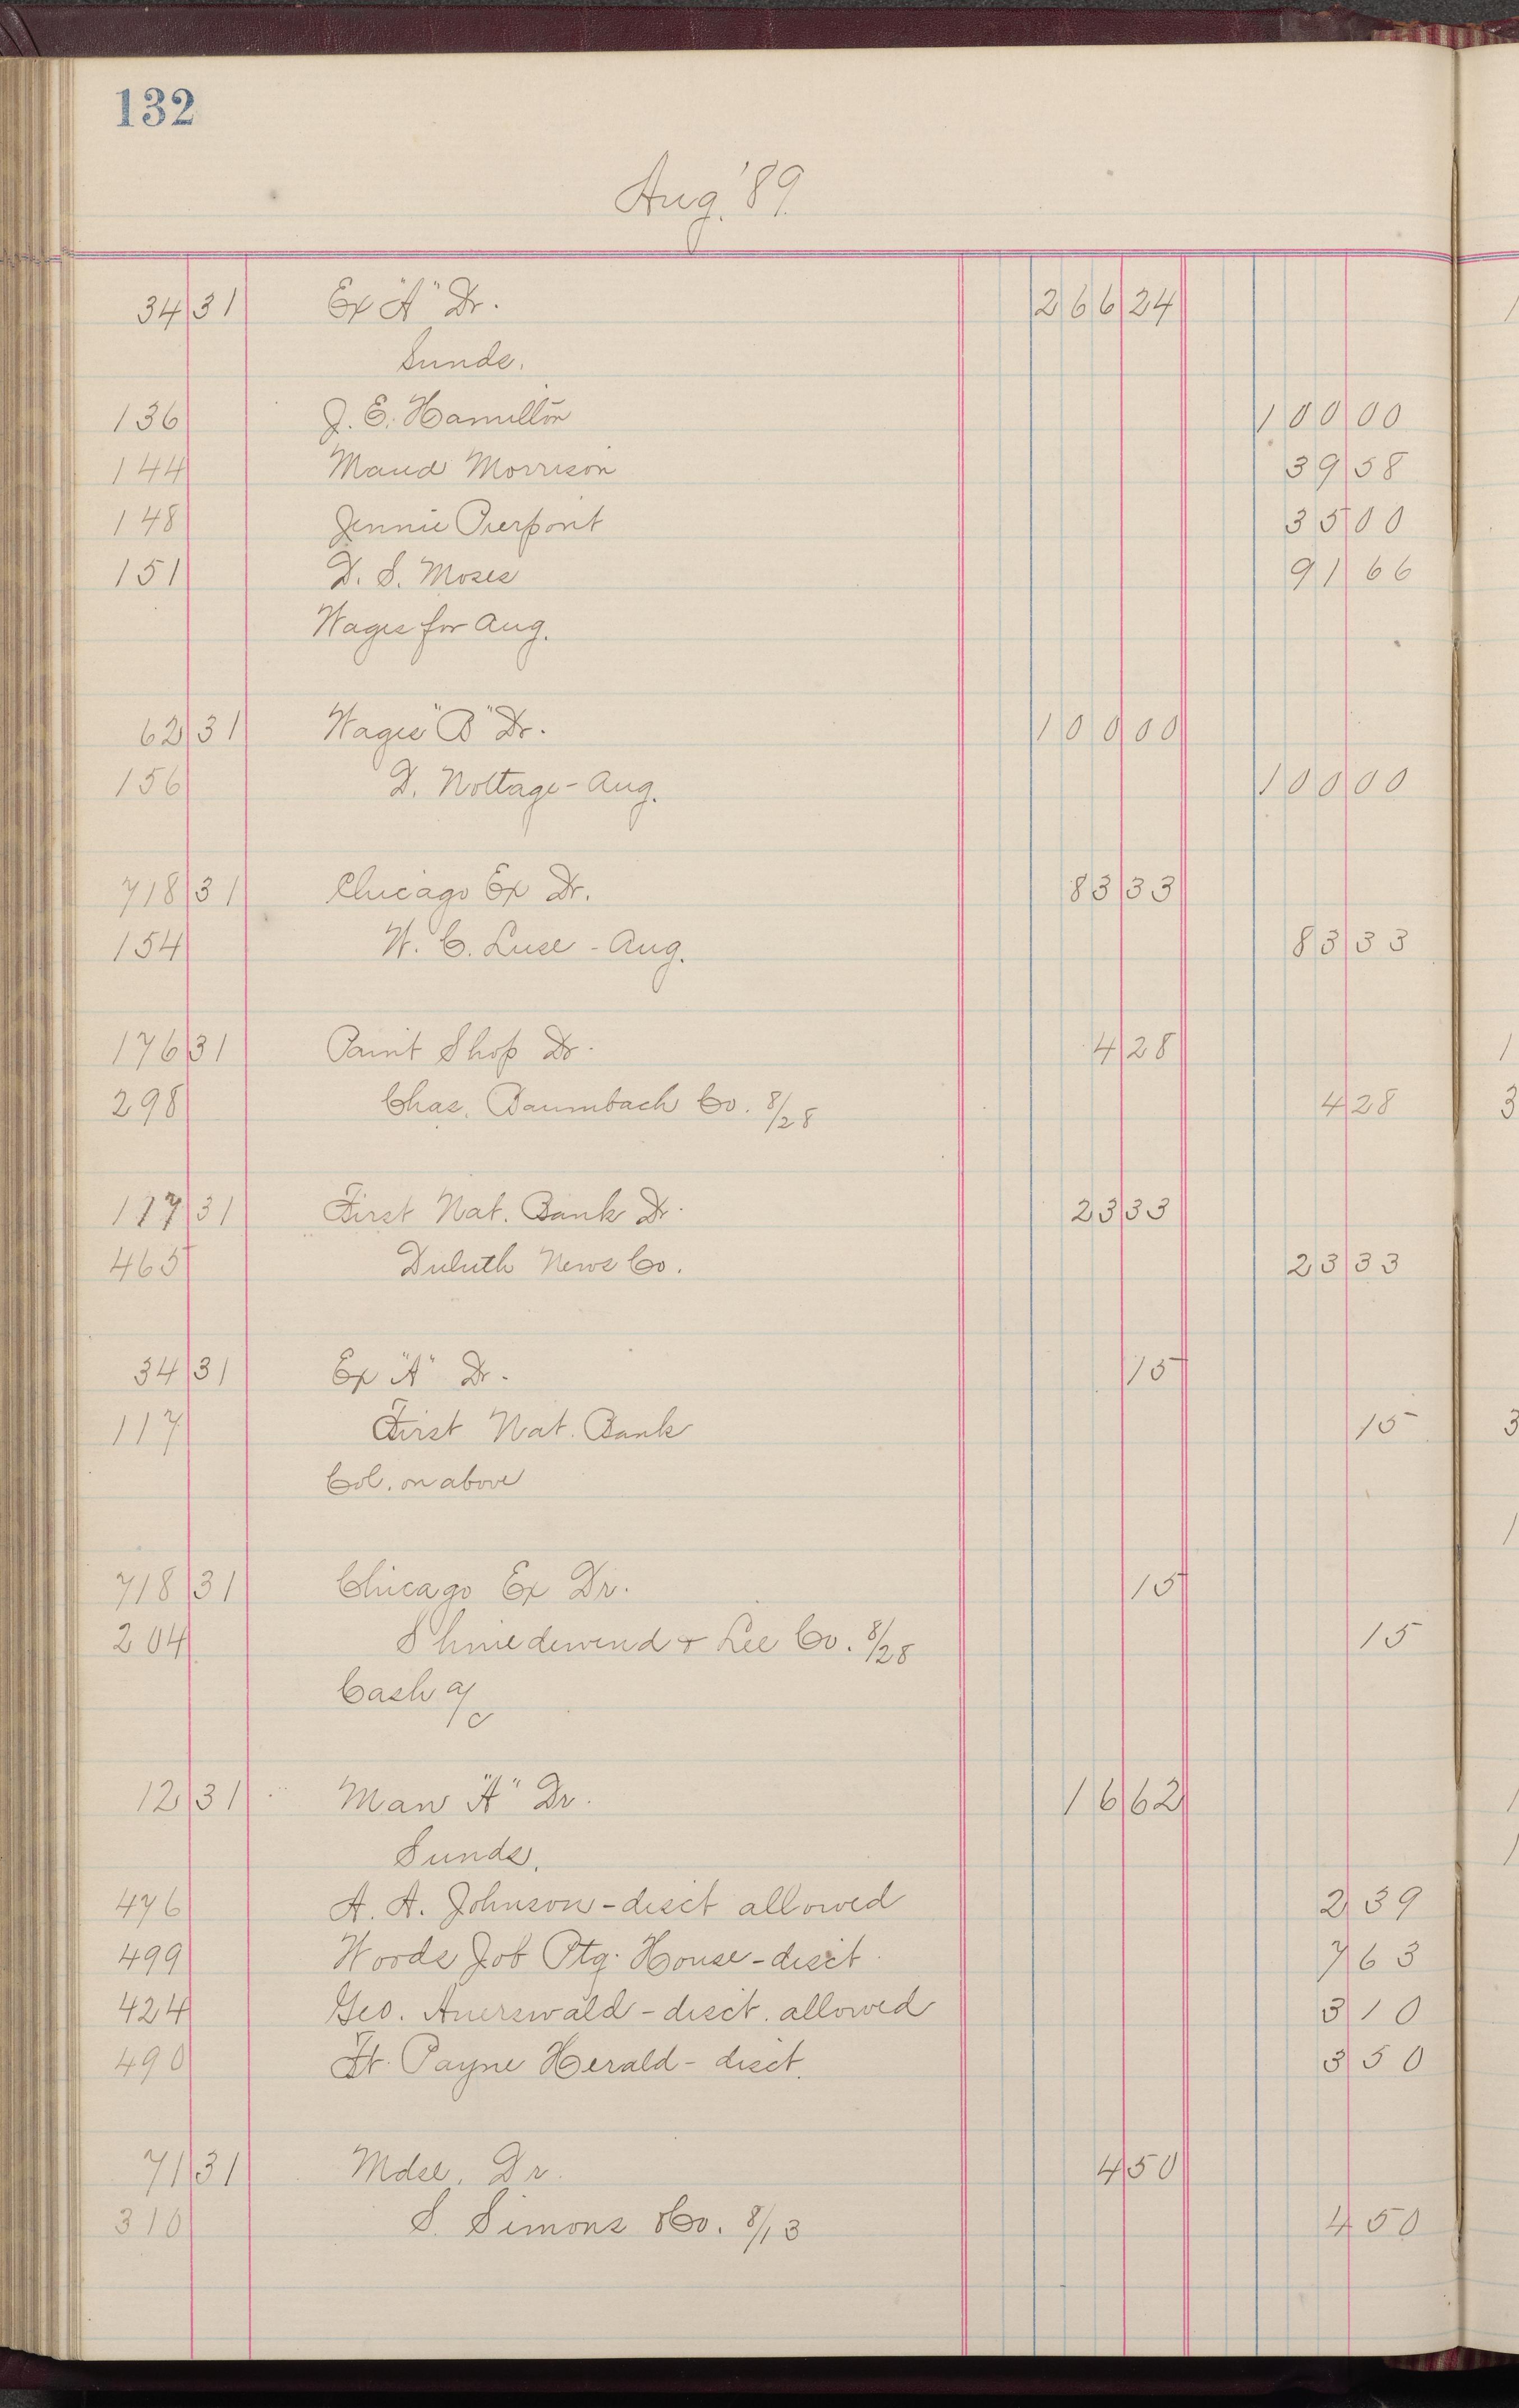 132
Aug. '89.
34 31 Ex "A" Dr. 266 24
Sunds.
136 J. E. Hamilton 100 00
144 Maud Morrison 39 58
148 Jennie Pierpont 35 00
151 D. S. Moses 91 66
Wages for Aug.
62 31 Wages "B" Dr. 100 00
156 D. Noltage - Aug. 100 00
718 31 Chicago Ex Dr. 83 33
154 W. C. Luse - Aug. 83 33
176 31 Paint Shop Dr. 4 28
298 Chas. Baumbach Co. 8/28 4 28
117 31 First Nat. Bank Dr. 23 33
465 Duluth News Co. 23 33
34 31 Ex "A" Dr. 15
117 First Nat. Bank 15
Col. on above
718 31 Chicago Ex Dr. 15
204 Shniedewend & Lee Co. 8/28 15
Cash a/c
12 31 Man "A" Dr. 16 62
Sunds.
476 A. A. Johnson - disct allowed 2 39
499 Woods Job Ptg. House - disct 7 63
424 Geo. Auerswald - disct. allowed 3 10
490 Ft. Payne Herald - disct. 3 50
71 31 Mdse. Dr. 4 50
310 S. Simons Co. 8/13 4 50